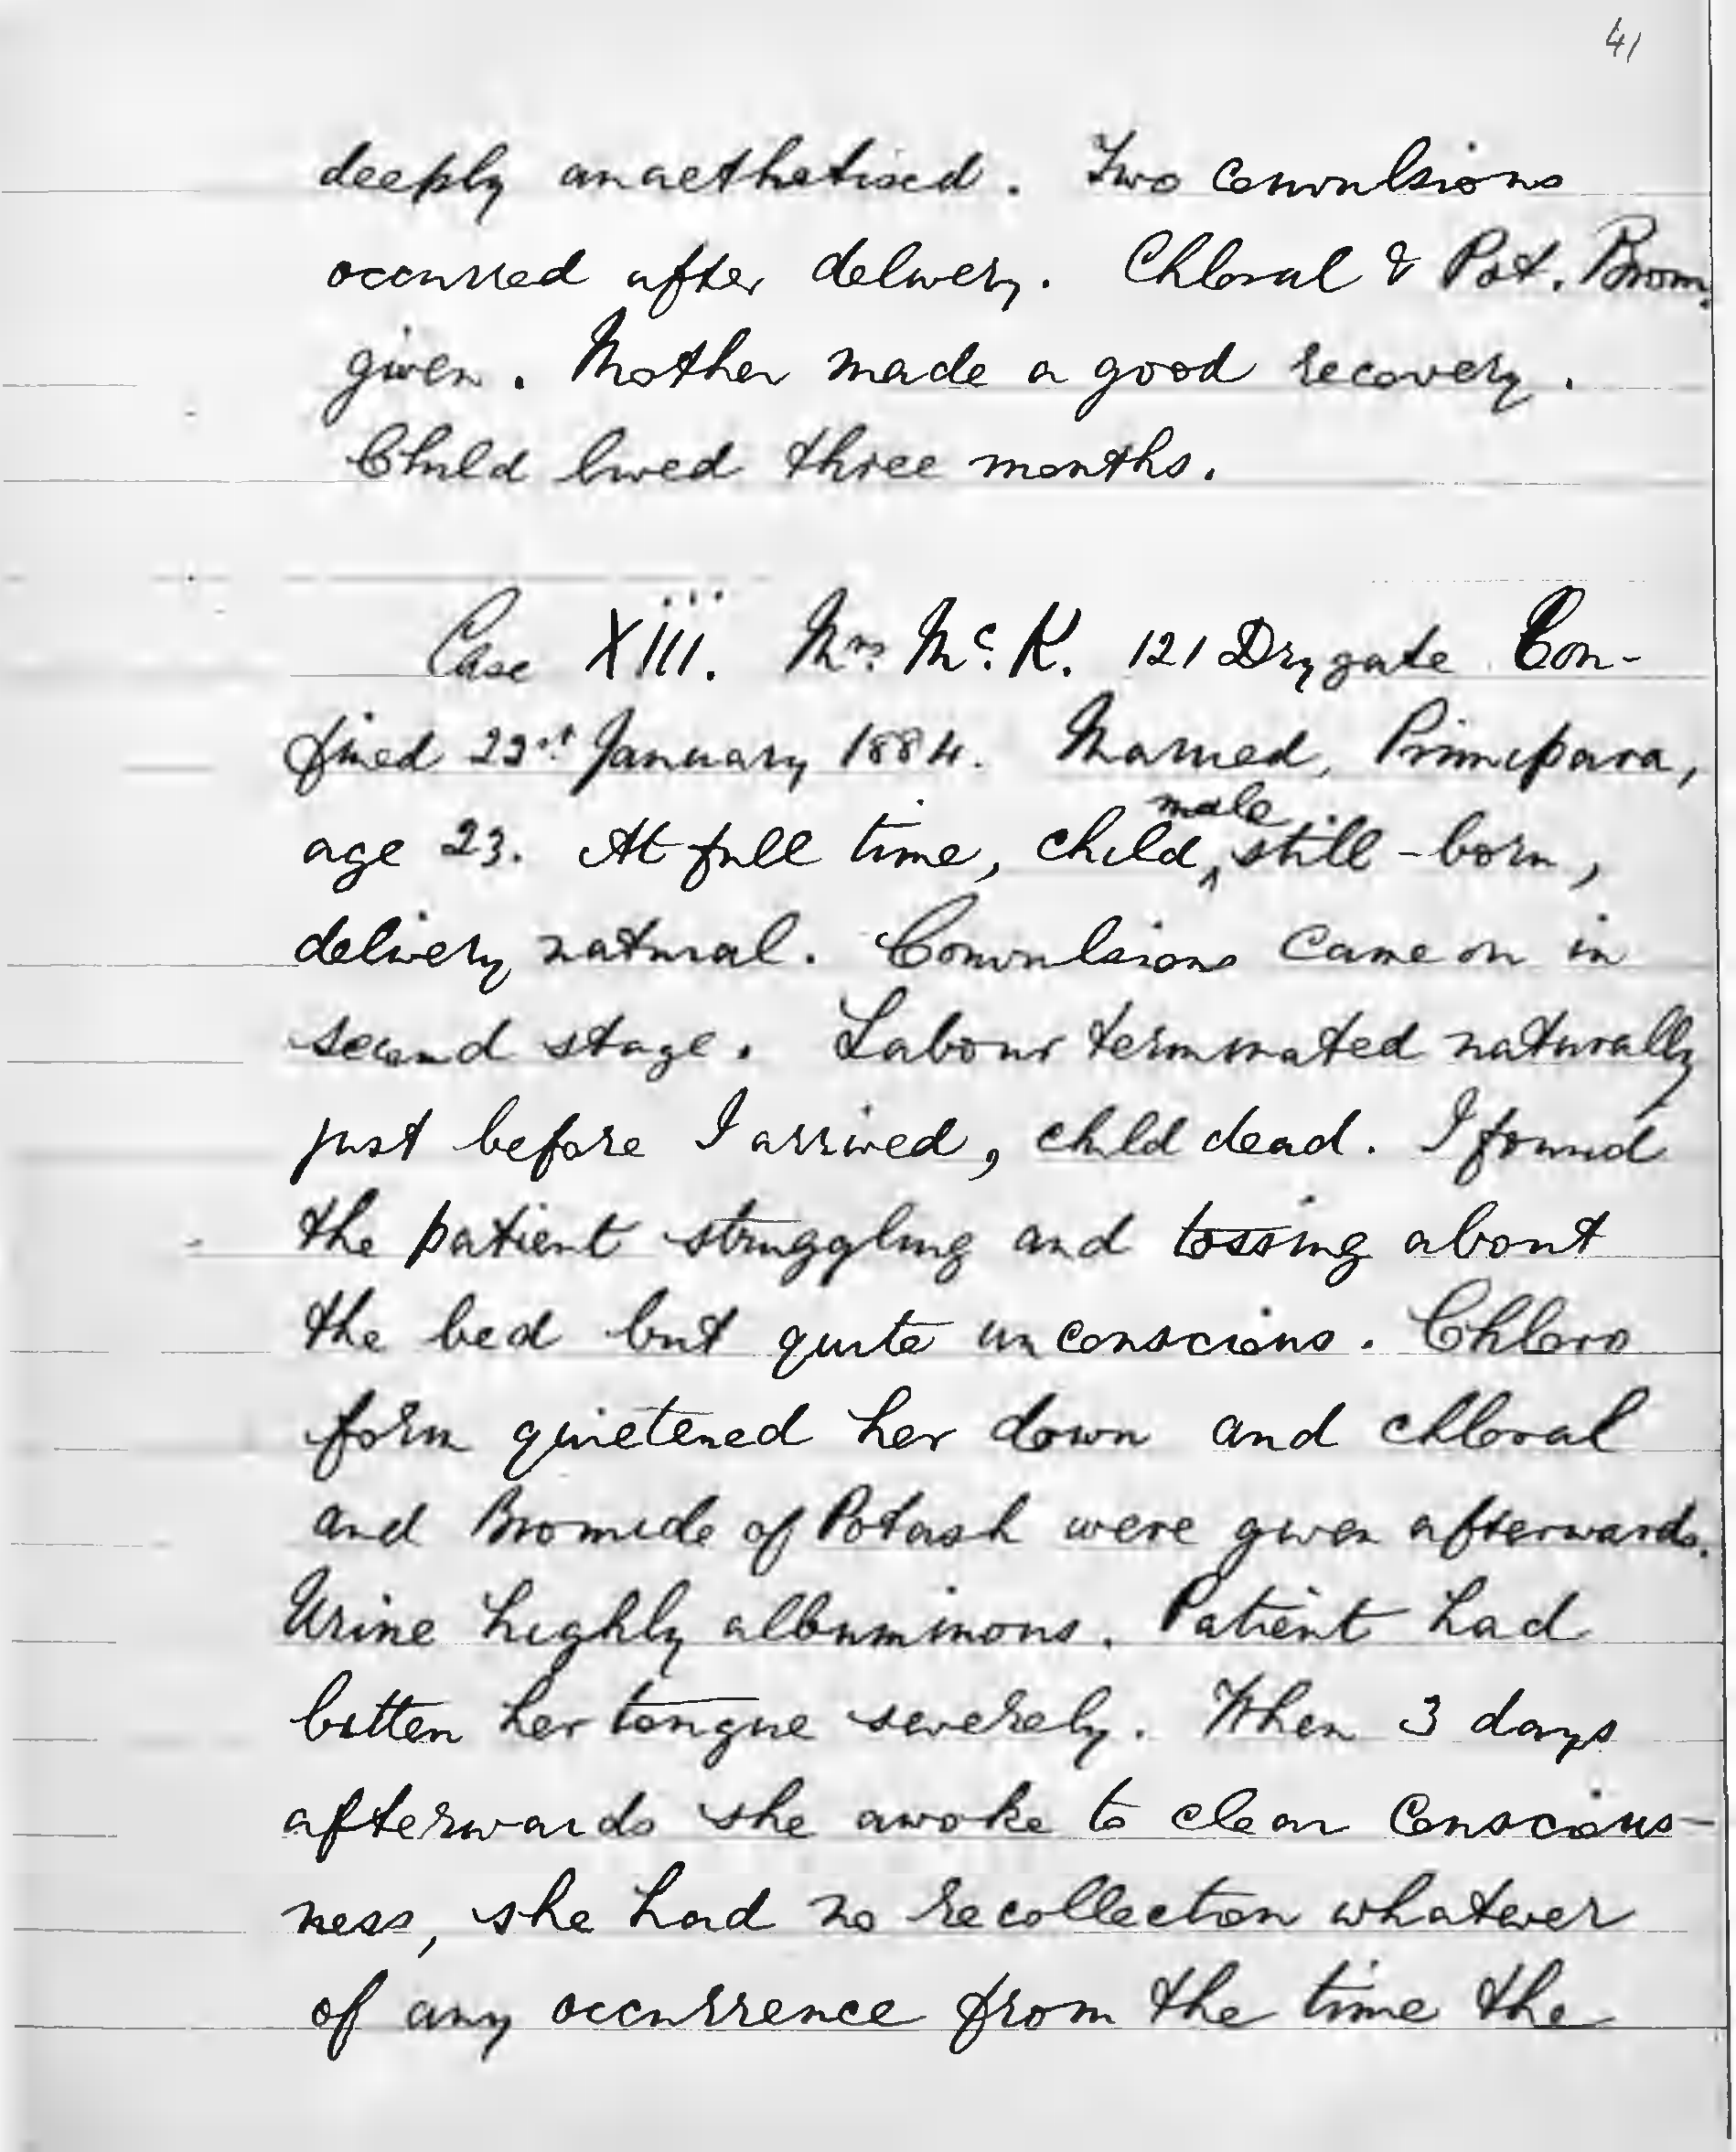 41
deeply anaethetised. Two convulsions
occurred after delivery. Chloral & Pot. Brom.
given. Mother made a good recovery.
Child lived three months.
Case XIII. Mrs. Mc. K. 121 Drygate Con-
fined January 1884. Married, Primipara,
age 23. At full time, child, male still-born,
delivery natural. Convulsions came on in
second stage. Labour terminated naturally
just before I arrived, child dead. I found
the patient struggling and tossing about
the bed but quite unconscious. Chloro
form quietened her down and chloral
and Bromide of Potash were given afterwards.
Urine highly albuminous. Patient had
bitten her tongue severely. When 3 days
afterwards she awoke to clear conscious-
ness, she had no recollection whatever
of any occurrence from the time the